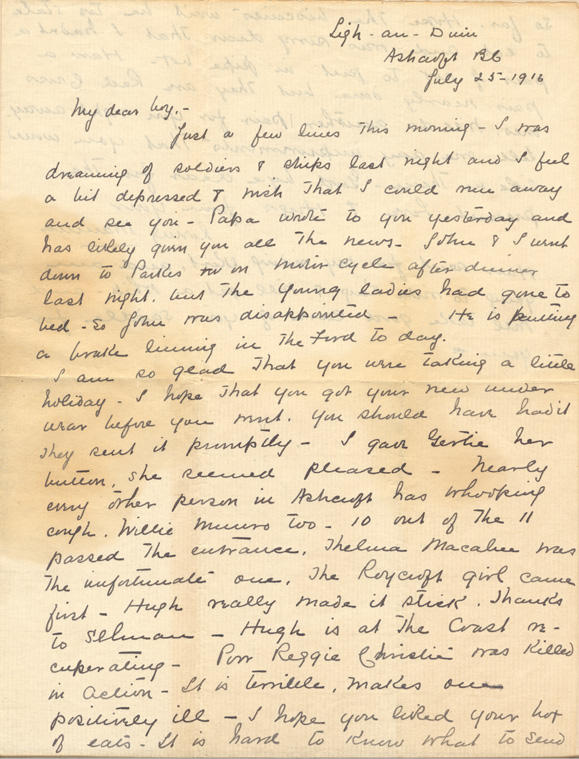 Ligh-an-Duin
Ashcroft B.C
July 25-1916
My dear boy,-
Just a few lines this morning - I was
dreaming of soldiers & ships last night and I feel
a bit depressed & wish that I could run away
and see you - Papa wrote to you yesterday and
has likely given you all the news - John & I went
down to Parkes on motor cycle after dinner
last night, but the young ladies had gone to
bed - so John was disappointed - He is putting
a brake lining in the Ford to day.
I am so glad that you were taking a little
holiday - I hope that you got your new under
wear before you went. you should have had it
they sent it promptly - I gave Gertie her
button, she seemed pleased - Nearly
every other person in Ashcroft has whooping
cough. Willie Munro too - 10 out of the 11
passed the entrance, Thelma Macabee was
the unfortunate one. The Roycroft girl came
first - Hugh really made it stick. Thanks
to Selman - Hugh is at the Coast re-
cuperating - Poor Reggie Christie was killed
in action - It is terrible, makes one
positively ill - I hope you liked your box
of eats - It is hard to know what to send